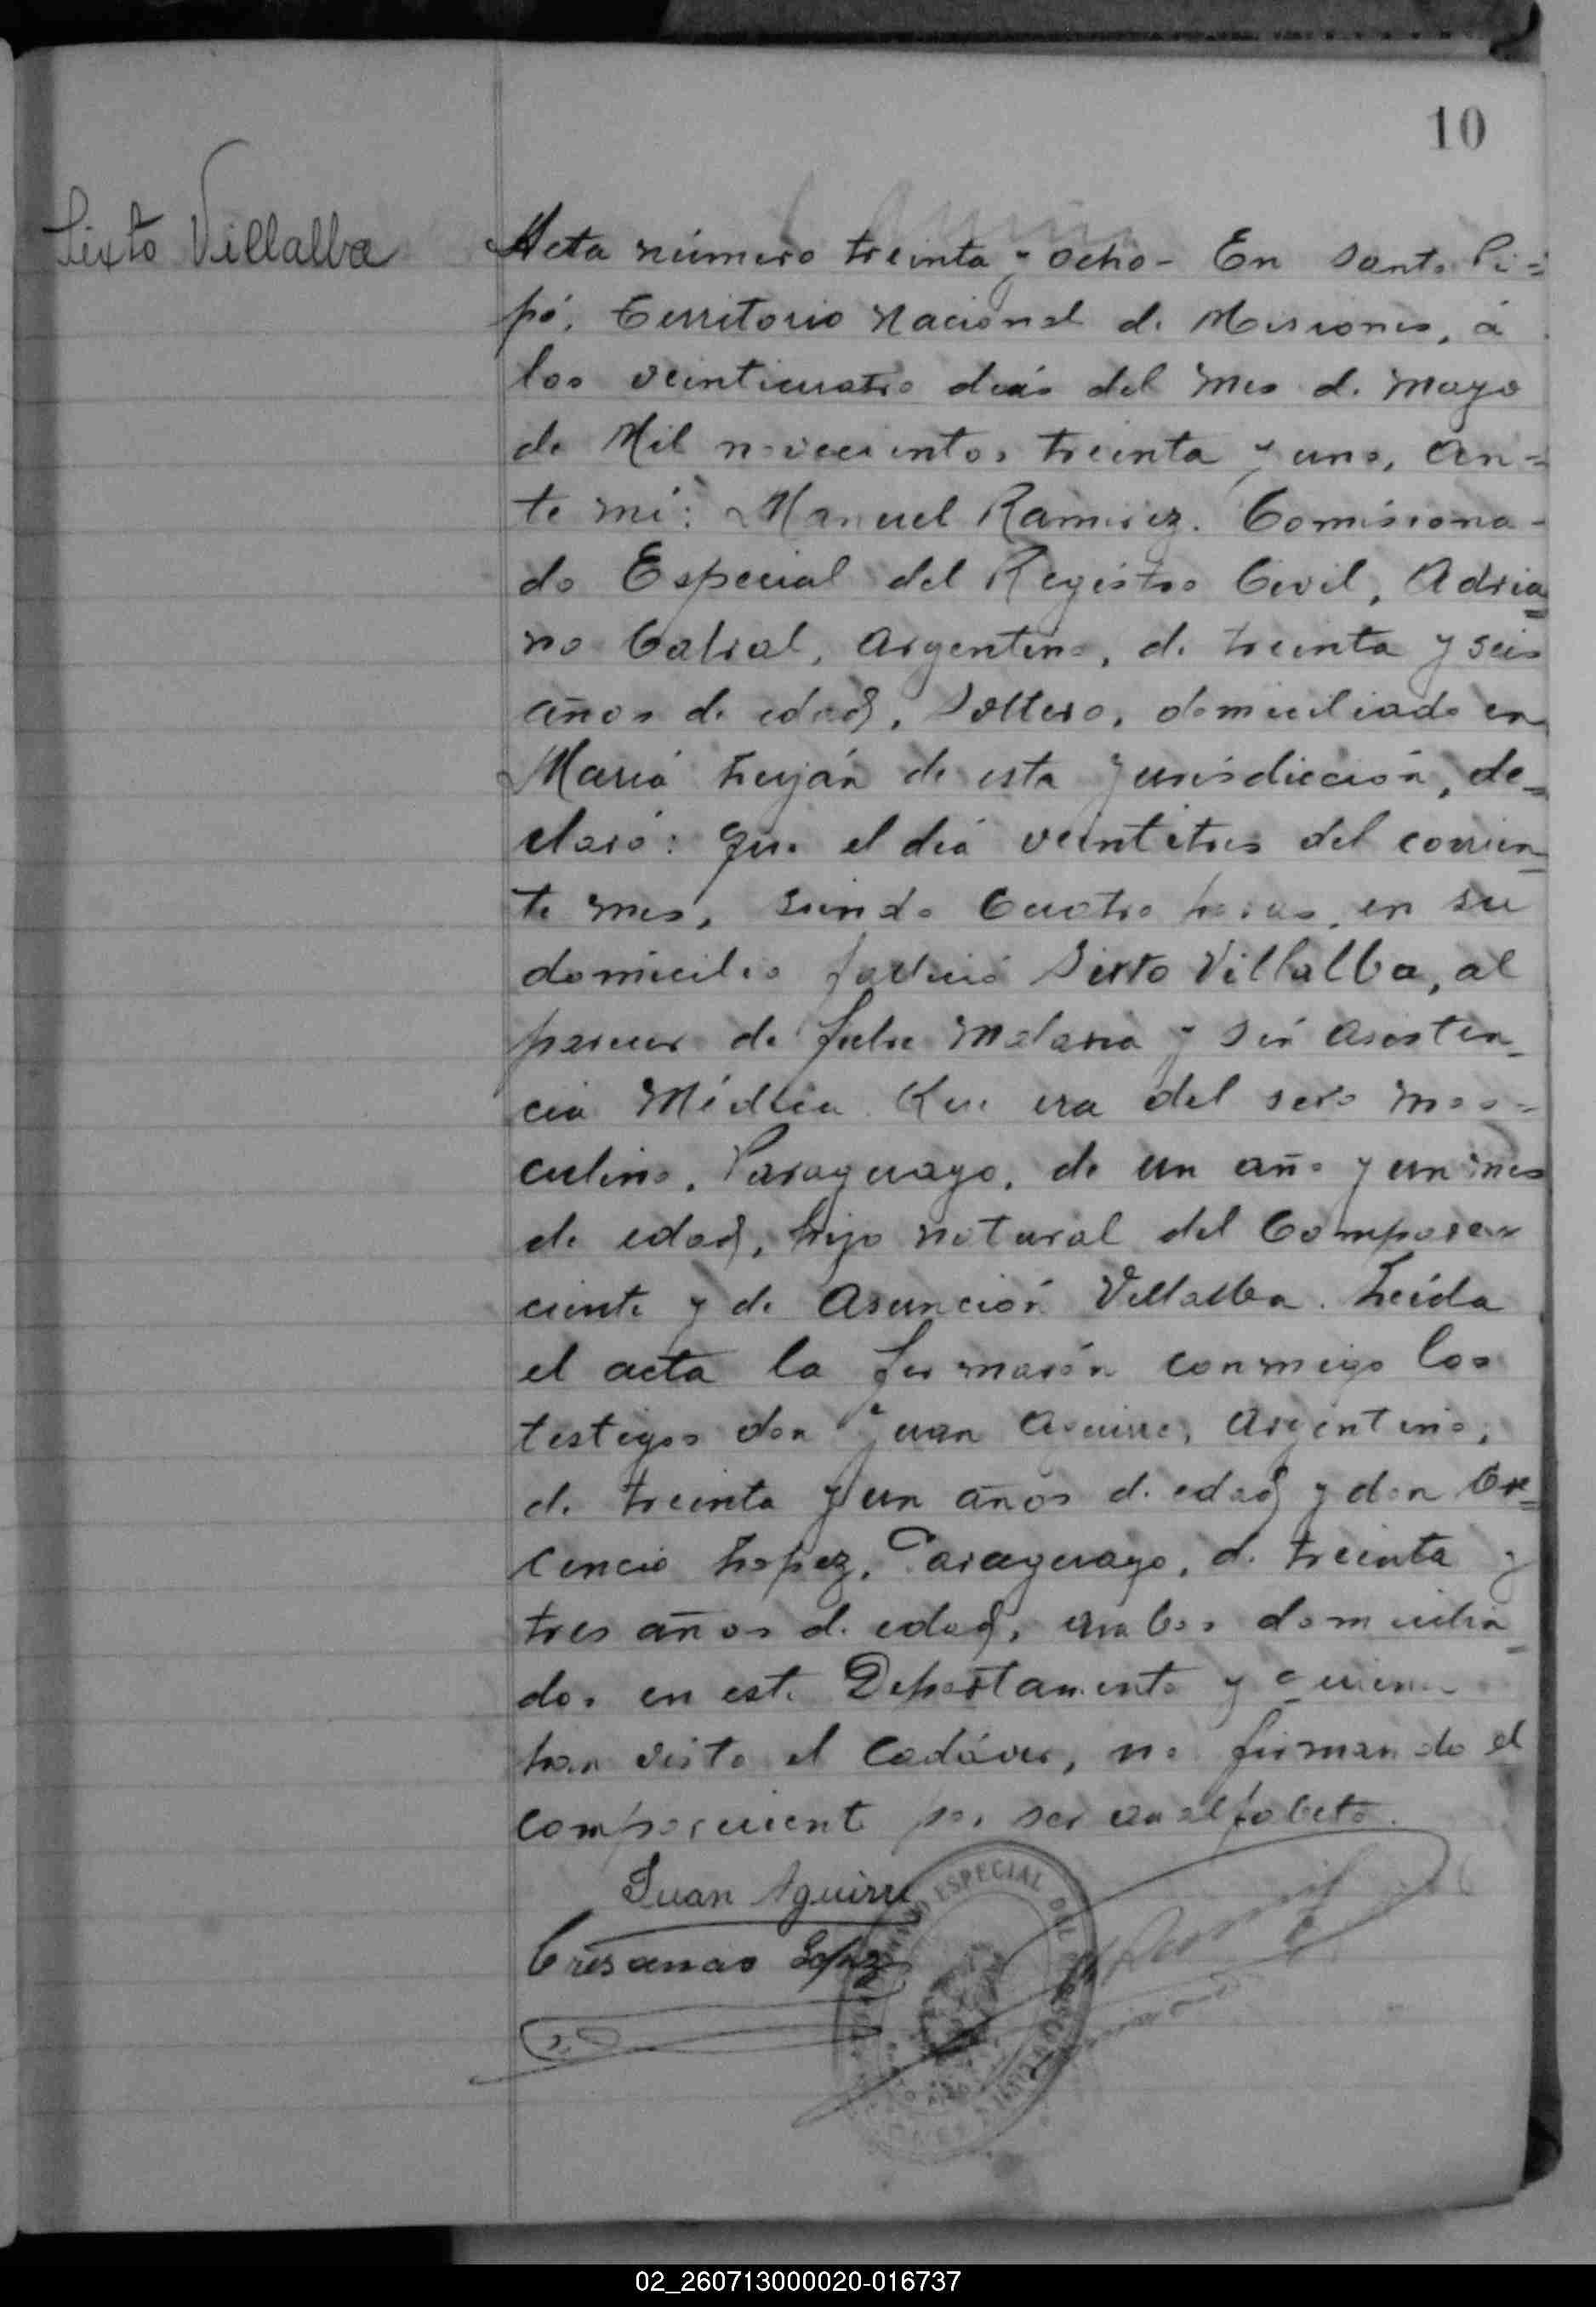 10
Sixto Villalba
Acta número treinta y ocho - En Santo Pi=
pó, Territorio Nacional de Misiones, á
los veinticuatro días del mes de Mayo
de Mil novecientos treinta y uno, an=
te mí: Manuel Ramirez. Comisiona-
do Especial del Registro Civil, Adria=
no Cabral, Argentino, de treinta y seis
años de edad, Soltero, domiciliado en
María Luján de esta Jurisdicción, de=
claró: Que el día veintitres del corrien=
te mes, siendo Cuatro horas, en su
domicilio falleció Sixto Villalba, al
parecer de fiebre Malaria y sin asisten-
cia Médica. Que era del sexo mas=
culino, Paraguayo, de un año y un mes
de edad, hijo natural del Compare-
ciente y de Asunción Villalba. Leída
el acta la firmarón conmigo los
testigos don Juan Aguirre, Argentino,
de treinta y un años de edad y don Cre=
cencio Lopez, Paraguayo, de treinta y
tres años de edad, ambos domicilia-
dos en este Departamento y quienes
han visto el Cadáver, no firmando el
compareciente por ser analfabeto.
Juan Aguirre
Lopez
ESPECIAL DEL
02_260713000020-016737